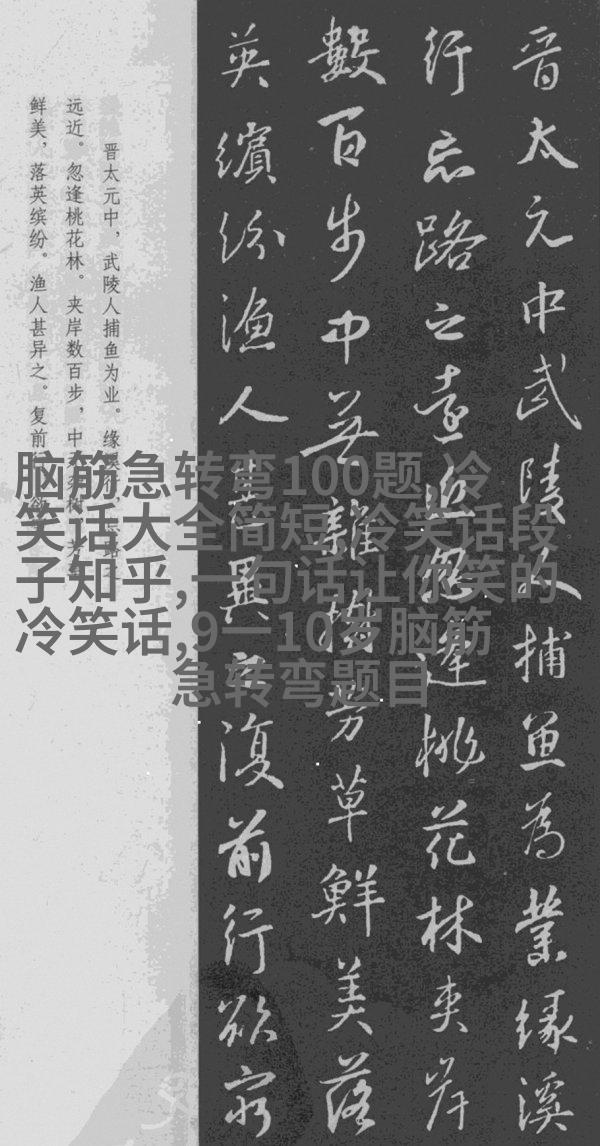 晋太元中武陵人捕魚為業緣溪
行忘路之遠近忽逢桃花林夹岸
數百步中無雜樹芳草鮮美落
英繽紛漁人甚異之復前行欲窮
晋太元中，武陵人捕鱼为业。缘溪行，
远近。忽逢桃花林。夹岸数百步，中
鲜美，落英缤纷。渔人甚异之。复前
脑筋急转弯100题,冷
笑话大全简短,冷笑话段
子知乎,一句话让你笑的
冷笑话,9一10岁脑筋
急转弯题目